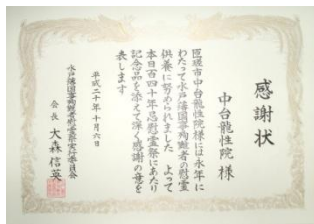 感謝状
中台龍性院 様
匝瑳市中台龍性院様には永年に
わたって水戸藩国事殉難者の慰霊
供養に努められました よって
本日百四十年忌慰霊祭にあたり
記念品を添えて深く感謝の意を
表します
平成二十年十月六日
水戸藩国事殉難者慰霊祭実行委員会
会長 大森信英